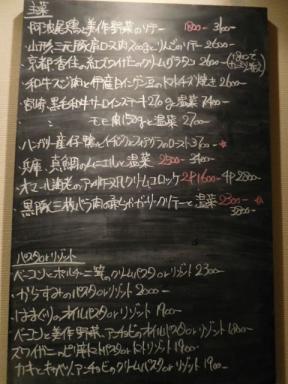 主菜
・阿波尾鶏と美作野菜のソテー 1800- 3400-
・山形三元豚肩ロース肉200gとりんごのソテー 2600-
・京都香住の紅ズワイガニのクリームグラタン 2600-
・和牛スジ肉と伊産白インゲン豆のトマトチーズ焼き 2600-
・宮崎黒毛和牛サーロインステーキ270g 温菜 7400-
・ 〃 モモ肉150gと温菜 2700-
・ハンガリー産仔鴨 フォアグラのロースト 3700-
・兵庫 真鯛のムニエルと温菜 2500- 3400-
・オマール海老のアメリケーヌクリームコロッケ 2P1600- 4P2800-
・黒豚三枚バラ肉の ガーリックソテーと温菜 2300- 3800-
パスタorリゾット
・ベーコンとポルチーニ茸のクリームパスタorリゾット 2300-
・からすみのパスタorリゾット 2000-
・はまぐりのオイルパスタorリゾット 1900-
・ベーコンと美作野菜、アンチョビのオイルパスタorリゾット 1800-
ズワイガニのトマトパスタorトマトリゾット 1900-
・カキとキャベツ、アンチョビのクリームパスタorリゾット 1900-